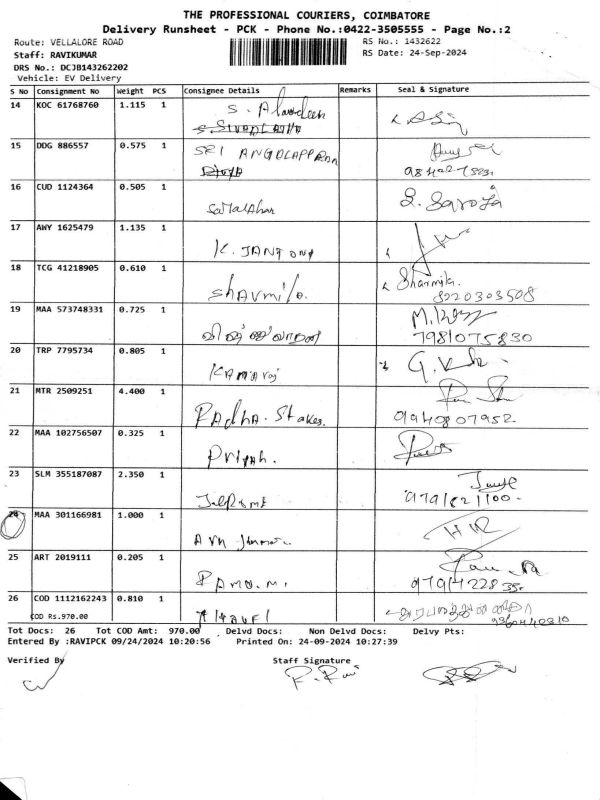 THE PROFESSIONAL COURIERS, COIMBATORE
Delivery Runsheet - PCK - Phone No.:0422-3505555 - Page No.:2
Route: VELLALORE ROAD RS No.: 1432622
Staff: RAVIKUMAR RS Date: 24-Sep-2024
DRS No.: DCJB143262202
Vehicle: EV Delivery
S No Consignment No Weight PCS Consignee Details Remarks Seal & Signature
14 KOC 61768760 1.115 1 S.
15 DDG 886557 0.575 1 SRI
16 CUD 1124364 0.505 1 S. Saroja
17 AWY 1625479 1.135 1 K.
18 TCG 41218905 0.610 1 Sharmila. Sharmila.
8220303508
19 MAA 573748331 0.725 1
7981075830
20 TRP 7795734 0.805 1 Kamaraj
21 MTR 2509251 4.400 1 Radha. Stakes.
9940807952
22 MAA 102756507 0.325 1 Priyah.
23 SLM 355187087 2.350 1
24 MAA 301166981 1.000 1
25 ART 2019111 0.205 1 RAMU.M.
26 COD 1112162243 0.810 1
COD Rs.970.00
Tot Docs: 26 Tot COD Amt: 970.00 Delvd Docs: Non Delvd Docs: Delvy Pts:
Entered By :RAVIPCK 09/24/2024 10:20:56 Printed On: 24-09-2024 10:27:39
Verified By Staff Signature
R. Ravi